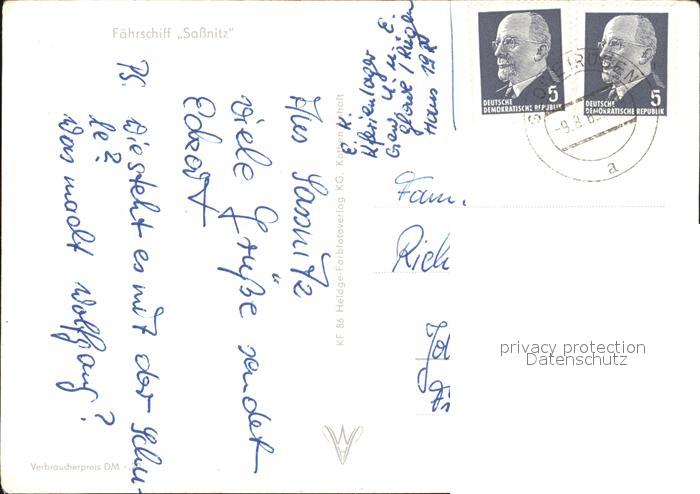 Fährschiff „Saßnitz"
Aus Sassnitz
viele Grüße sendet
Eckart
PS. Wie steht es mit der Schu-
le?
Was macht Wolfgang?
E. K.
Glowe / Rügen
Haus
KF 86 Heldge-Farbfotoverlag KG, Köthen-Anhalt
Verbraucherpreis DM -
5
DEUTSCHE
DEMOKRATISCHE REPUBLIK
5
DEUTSCHE
DEMOKRATISCHE REPUBLIK
-9.8.6
a
Fam.
Rich
privacy protection
Datenschutz